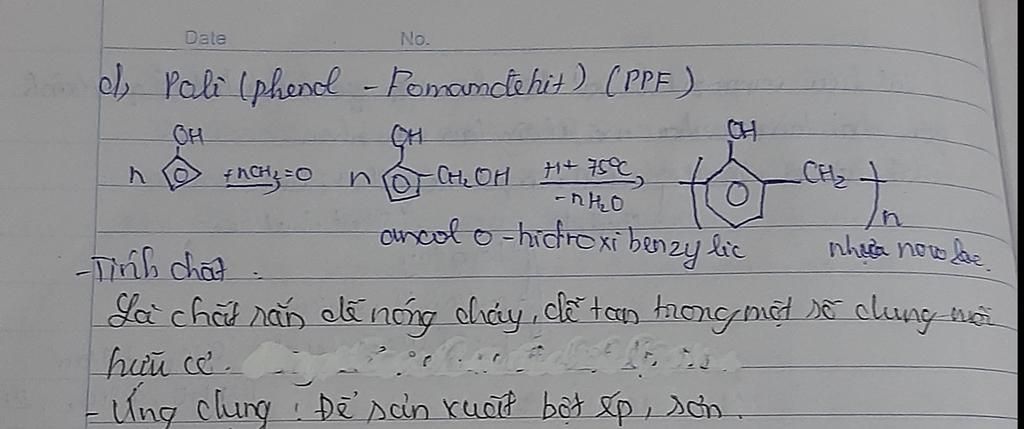 Date No.
d) Poli (phenol - Fomamđehit) (PPF)
OH OH OH
n +nCH2=O n CH2OH H+ 75°C CH2
-nH2O n
ancol o-hiđroxi benzylic nhựa novolac.
- Tính chất.
Là chất rắn dễ nóng chảy, dễ tan trong một số dung môi
hữu cơ.
- Ứng dụng: Để sản xuất bột ép, sơn.